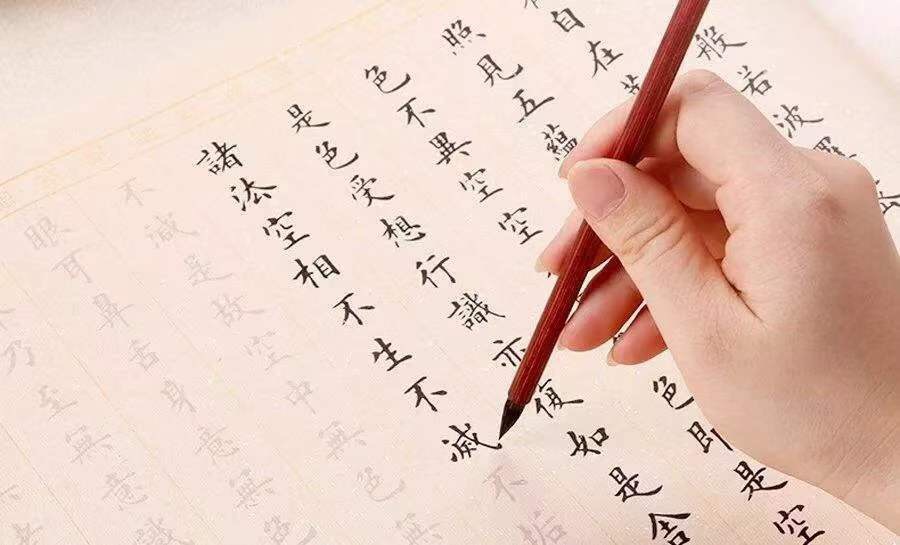 般若波
自在
照見五蘊
色不異空空色即是空
是色受想行識亦復如是舍
諸法空相不生不滅不垢
不減是故空中無色無
眼耳鼻舌身意無色
乃至無意識